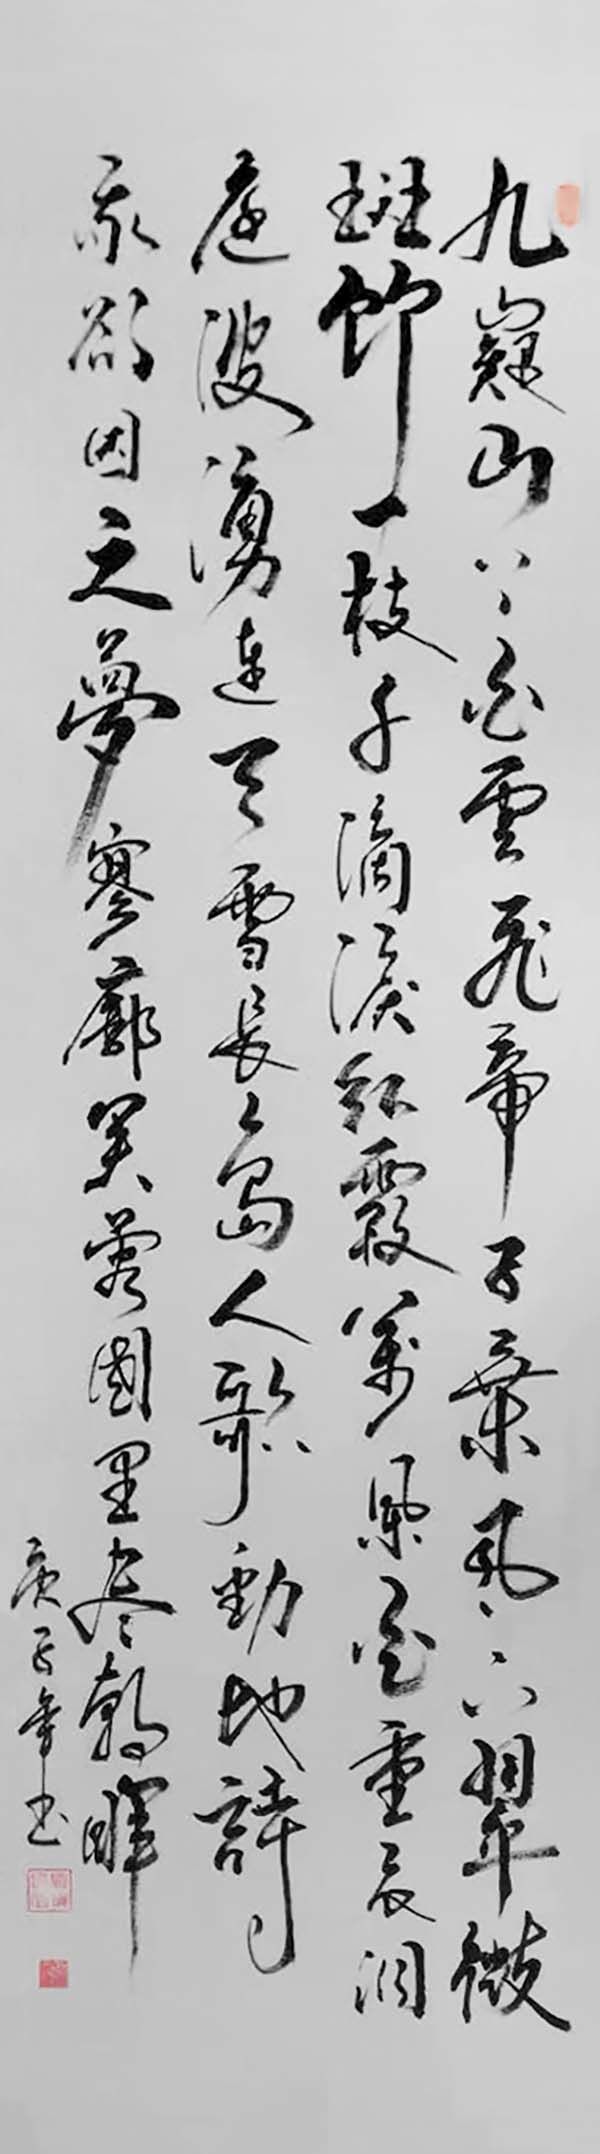 九嶷山上白雲飛帝子乘風下翠微
斑竹一枝千滴淚紅霞萬朵百重衣洞
庭波湧連天雪長島人歌動地詩
我欲因之夢寥廓芙蓉國里尽朝暉
庚子书